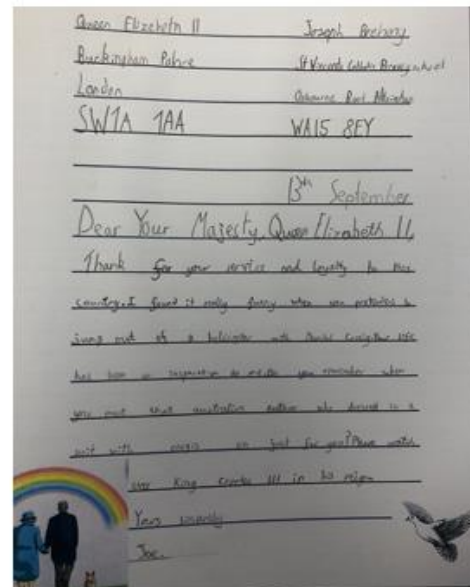 Queen Elizabeth II
Joseph
Buckingham Palace
St Vincent's Catholic Primary school
London
Road Altrincham
SW1A 1AA
WA15 8EY
13th September
Dear Your Majesty, Queen Elizabeth II,
Thank for your service and loyalty to this
country. I found it really funny when you pretended to
jump out of a helicopter with Your life
has been an inspiration to me. Do you remember when
you met that author who dressed in a
suit with on just for you? Please watch
over King III in his reign
Yours sincerely
Joe.